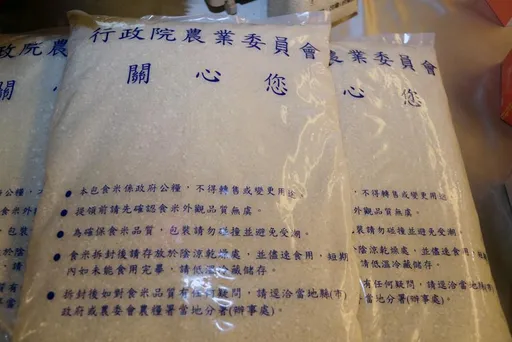 行政院農業委員會
關心您
● 本包食米係政府公糧，不得轉售或變更用途。
● 提領前請先確認食米外觀品質無虞。
● 為確保食米品質，包裝請勿碰撞並避免受潮。
● 食米拆封後請存放於陰涼乾燥處，並儘速食用，短期
內如未能食用完畢，請低溫冷藏儲存。
● 拆封後如對食米品質有任何疑問，請逕洽當地縣(市)
政府或農委會農糧署當地分署(辦事處)。
農業委員會
心您
不得轉售或變更用途。
質無虞。
裝請勿碰撞並避免受潮。
涼乾燥處，並儘速食用，短期
請低溫冷藏儲存。
有任何疑問，請逕洽當地縣(市)
當地分署(辦事處)。
行政院農
關